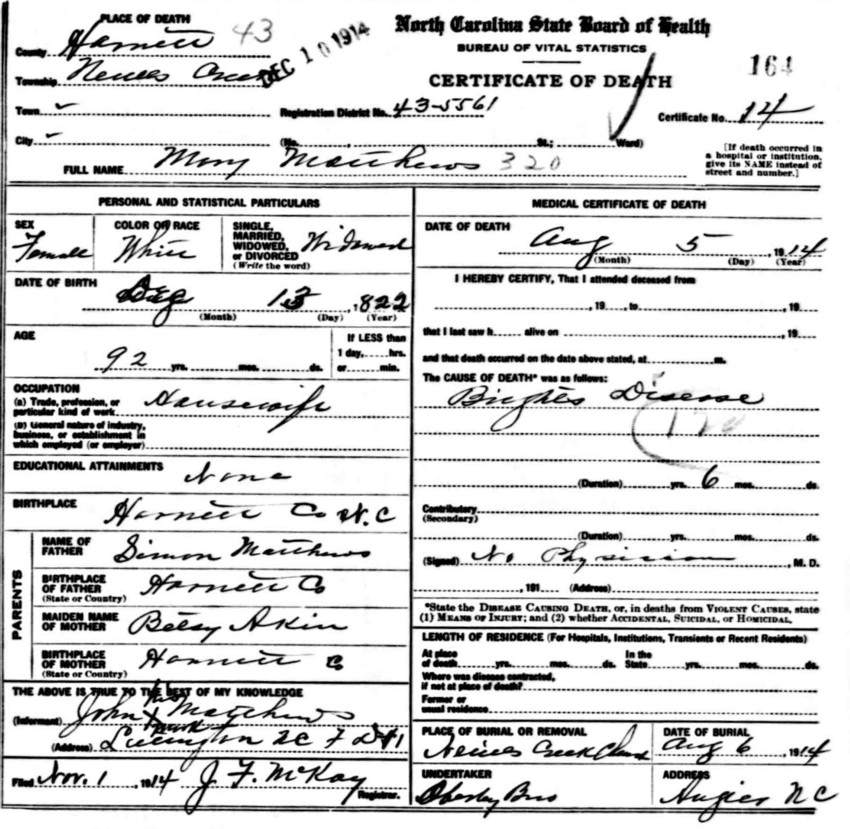 PLACE OF DEATH
County Harnett 43
DEC 10 1914
Township Neills Creek
Town ✓
City ✓
North Carolina State Board of Health
BUREAU OF VITAL STATISTICS
CERTIFICATE OF DEATH
164
Registration District No. 43-5561
Certificate No. 14
(No. St.; Ward)
[If death occurred in a hospital or institution, give its NAME instead of street and number.]
FULL NAME Mary Matthews 320
PERSONAL AND STATISTICAL PARTICULARS
SEX
Female
COLOR OR RACE
White
SINGLE, MARRIED, WIDOWED, or DIVORCED (Write the word)
Widowed
DATE OF BIRTH
13, 822
(Month) (Day) (Year)
AGE
92 yrs. mos. ds.
If LESS than 1 day, hrs. or min.
OCCUPATION
(a) Trade, profession, or particular kind of work Housewife
(b) General nature of industry, business, or establishment in which employed (or employer)
EDUCATIONAL ATTAINMENTS
None
BIRTHPLACE
Harnett Co N.C
PARENTS
NAME OF FATHER Simon Matthews
BIRTHPLACE OF FATHER (State or Country) Harnett Co
MAIDEN NAME OF MOTHER Betsy Akin
BIRTHPLACE OF MOTHER (State or Country) Harnett Co
THE ABOVE IS TRUE TO THE BEST OF MY KNOWLEDGE
(Informant) John his X mark Matthews
(Address) Lillington NC
Filed Nov. 1, 1914 J. F. McKay
Registrar.
MEDICAL CERTIFICATE OF DEATH
DATE OF DEATH
Aug 5, 1914
(Month) (Day) (Year)
I HEREBY CERTIFY, That I attended deceased from
, 19 , to , 19
that I last saw h alive on , 19
and that death occurred on the date above stated, at m.
The CAUSE OF DEATH* was as follows:
Brights Disease
120
(Duration) yrs. 6 mos. ds.
Contributory (Secondary)
(Duration) yrs. mos. ds.
(Signed) No Physician, M. D.
, 191 (Address)
*State the DISEASE CAUSING DEATH, or, in deaths from VIOLENT CAUSES, state
(1) MEANS OF INJURY; and (2) whether ACCIDENTAL, SUICIDAL, or HOMICIDAL.
LENGTH OF RESIDENCE (For Hospitals, Institutions, Transients or Recent Residents)
At place of death yrs. mos. ds. In the State yrs. mos. ds.
Where was disease contracted, if not at place of death?
Former or usual residence
PLACE OF BURIAL OR REMOVAL
Neills Creek Church
DATE OF BURIAL
Aug 6, 1914
UNDERTAKER
Bros
ADDRESS
Angier NC